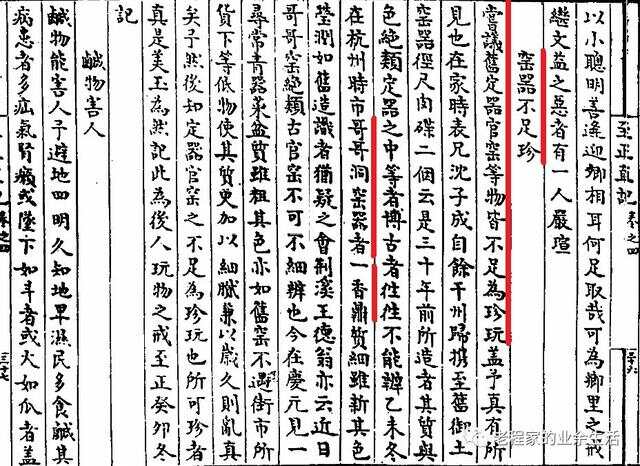 至正直記 卷之四
三十六
以小聰明善逢迎卿相耳何足取哉可為鄉里之戒
繼文益之惡者有一人嚴瑄
窑器不足珍
嘗議舊定器官窑等物皆不足為珍玩蓋予真有所
見也在家時表兄沈子成自餘干州歸携至舊御土
窑器徑尺肉碟二個云是三十年前所造者其質與
色絕類定器之中等者博古者往往不能辨乙未冬
在杭州時市哥哥洞窑器者一香鼎質細雖新其色
瑩潤如舊造識者猶疑之會荆溪王德翁亦云近日
哥哥窑絕類古官窑不可不細辨也今在慶元見一
尋常青器菜盆質雖粗其色亦如舊窑不過街市所
貨下等低物使其質更加以細膩兼以歲久則亂真
矣予然後知定器官窑之不足為珍玩也所可珍者
真是美玉為然記此為後人玩物之戒至正癸卯冬
記
鹹物害人
鹹物能害人予避地四明久知地卑濕民多食鹹其
病患者多疝氣腎癩或墜下如斗者或大如瓜者蓋
三十七
老程家的业余生活